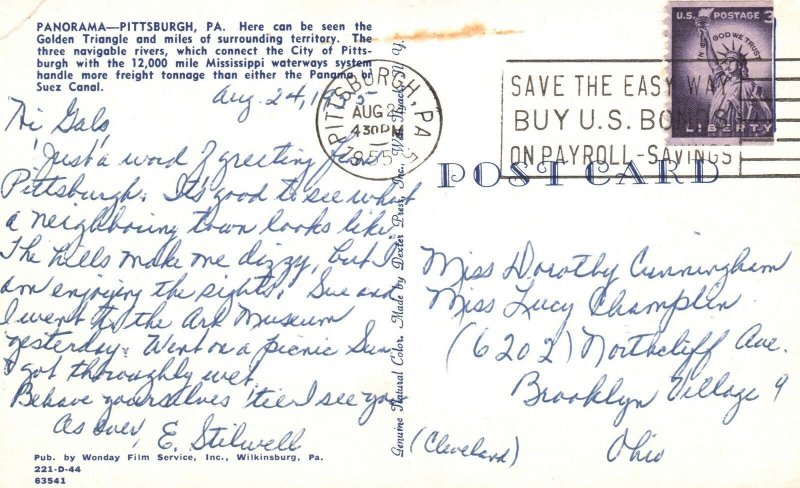 PANORAMA—PITTSBURGH, PA. Here can be seen the
Golden Triangle and miles of surrounding territory. The
three navigable rivers, which connect the City of Pitts-
burgh with the 12,000 mile Mississippi waterways system
handle more freight tonnage than either the Panama or
Suez Canal.
Aug. 24, 1955
Hi Gals,
Just a word of greeting from
Pittsburgh. It's good to see what
a neighbouring town looks like.
The hills make me dizzy, but I
am enjoying the sights. Sue and
I went to the Ark Museum
yesterday. Went on a picnic Sun.
I got thoroughly wet.
Behave yourselves 'til I see you
As ever, E. Stilwell
Pub. by Wonday Film Service, Inc., Wilkinsburg, Pa.
221-D-44
63541
Genuine Natural Color. Made by Dexter Press, Inc. West Nyack, N. Y.
PITTSBURGH, PA
AUG 2
430PM
1955
SAVE THE EASY WAY
BUY U.S. BONDS
ON PAYROLL-SAVINGS
U.S. POSTAGE 3
IN GOD WE TRUST
LIBERTY
POST CARD
Miss Dorothy Cunningham
Miss Lucy Champlin
(6202) Northcliff Ave.
Brooklyn Village 9
(Cleveland) Ohio